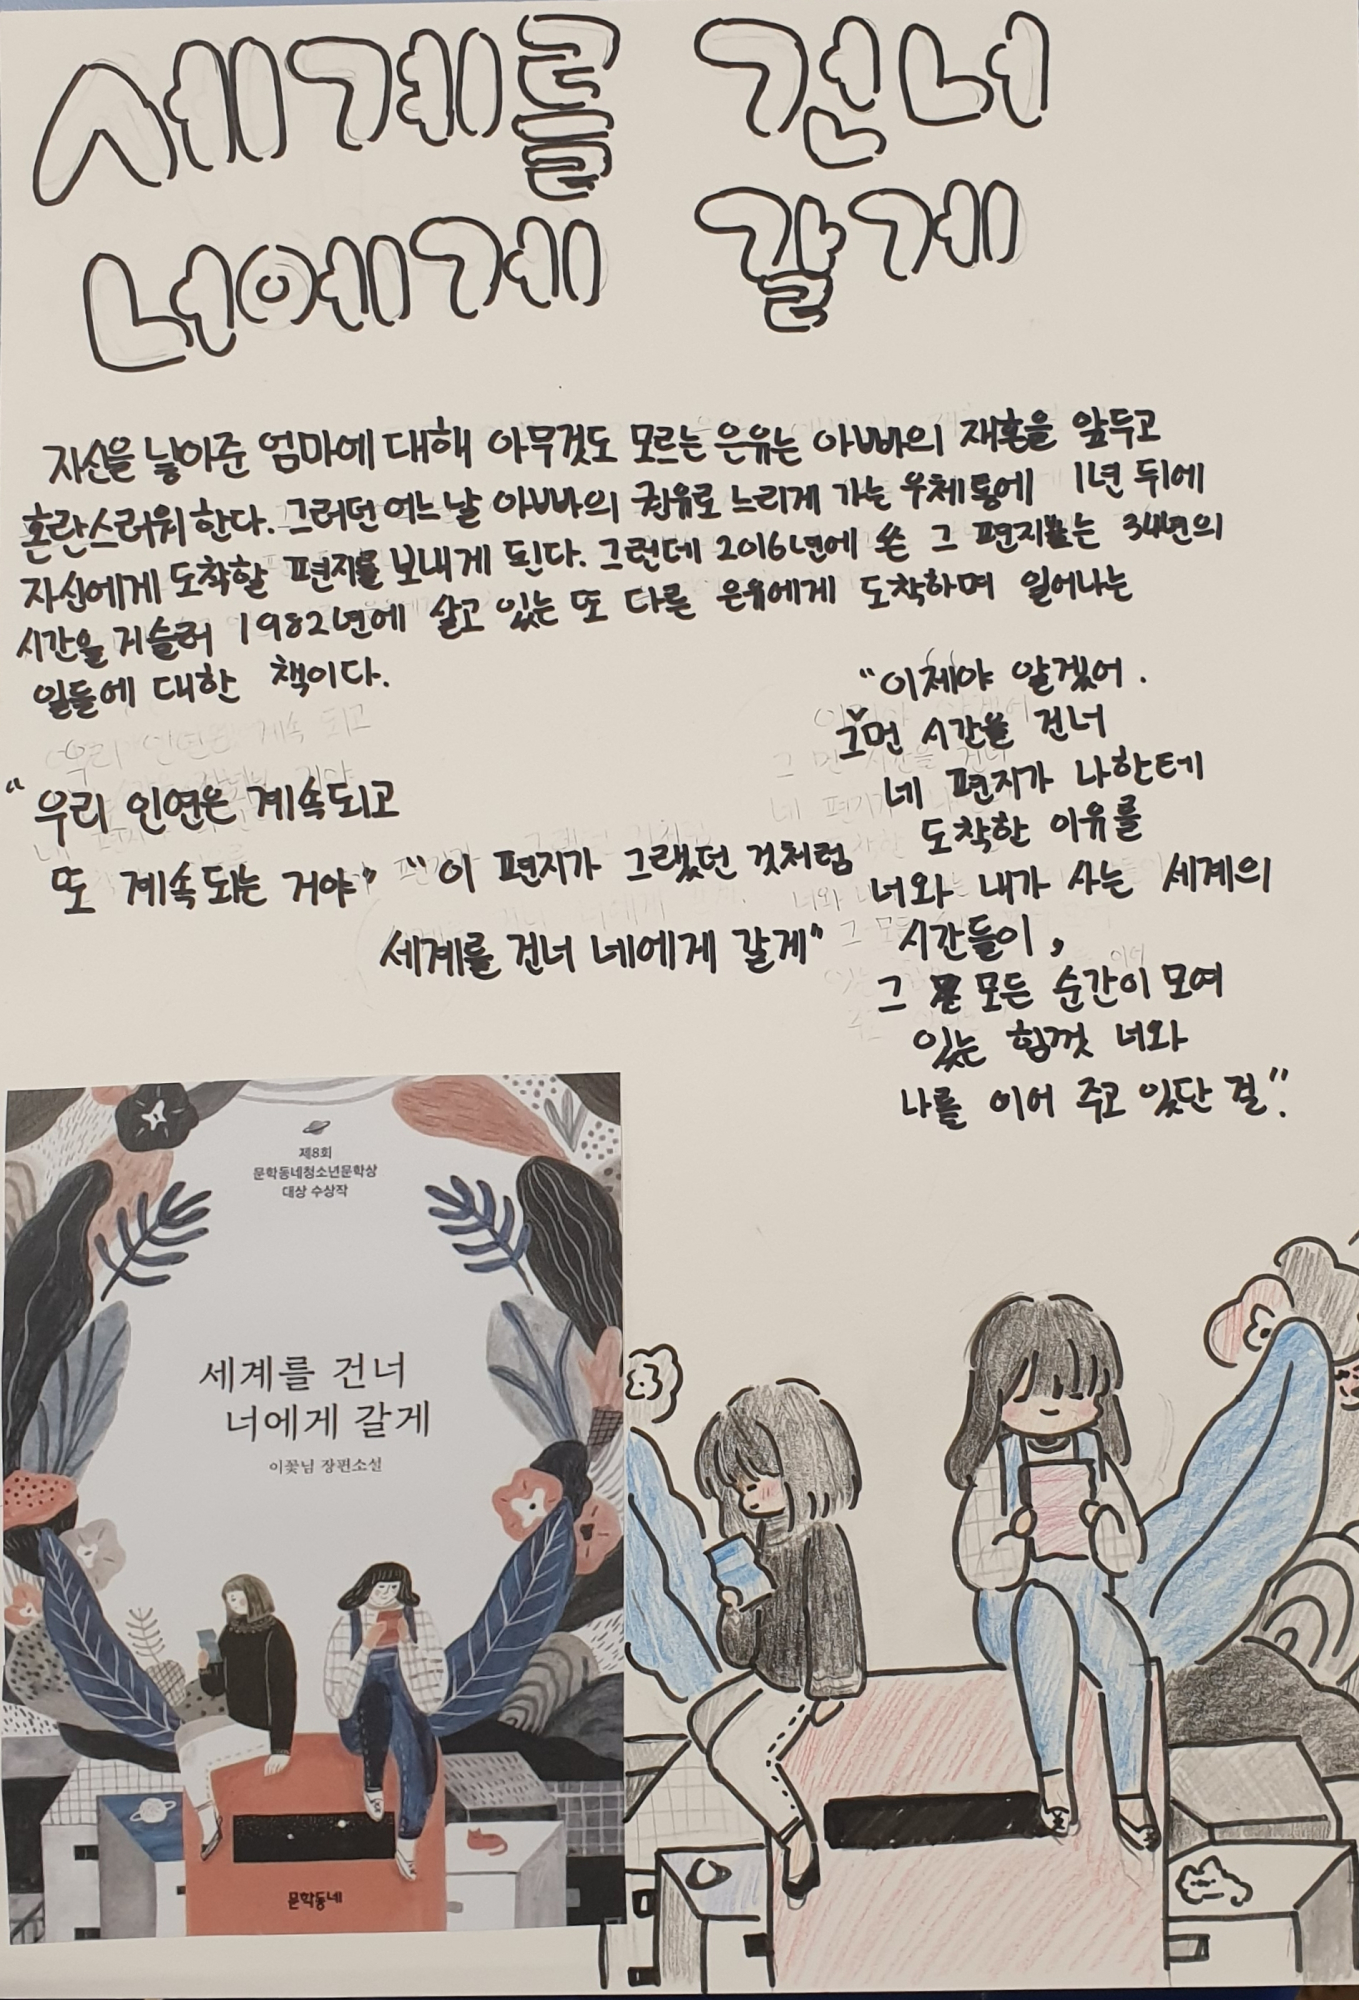 세계를 건너
너에게 갈게
자신을 낳아준 엄마에 대해 아무것도 모르는 은유는 아빠의 재혼을 앞두고
혼란스러워한다. 그러던 어느날 아빠의 권유로 느리게 가는 우체통에 1년 뒤에
자신에게 도착할 편지를 보내게 된다. 그런데 2016년에 쓴 그 편지는 34년의
시간을 거슬러 1982년에 살고 있는 또 다른 은유에게 도착하며 일어나는
일들에 대한 책이다.
"우리 인연은 계속되고
또 계속되는 거야"
"이 편지가 그랬던 것처럼
세계를 건너 네에게 갈게"
"이제야 알겠어.
그 먼 시간을 건너
네 편지가 나한테
도착한 이유를
너와 내가 사는 세계의
시간들이,
그 모든 순간이 모여
있는 힘껏 너와
나를 이어 주고 있단 걸"
제8회
문학동네청소년문학상
대상 수상작
세계를 건너
너에게 갈게
이꽃님 장편소설
문학동네